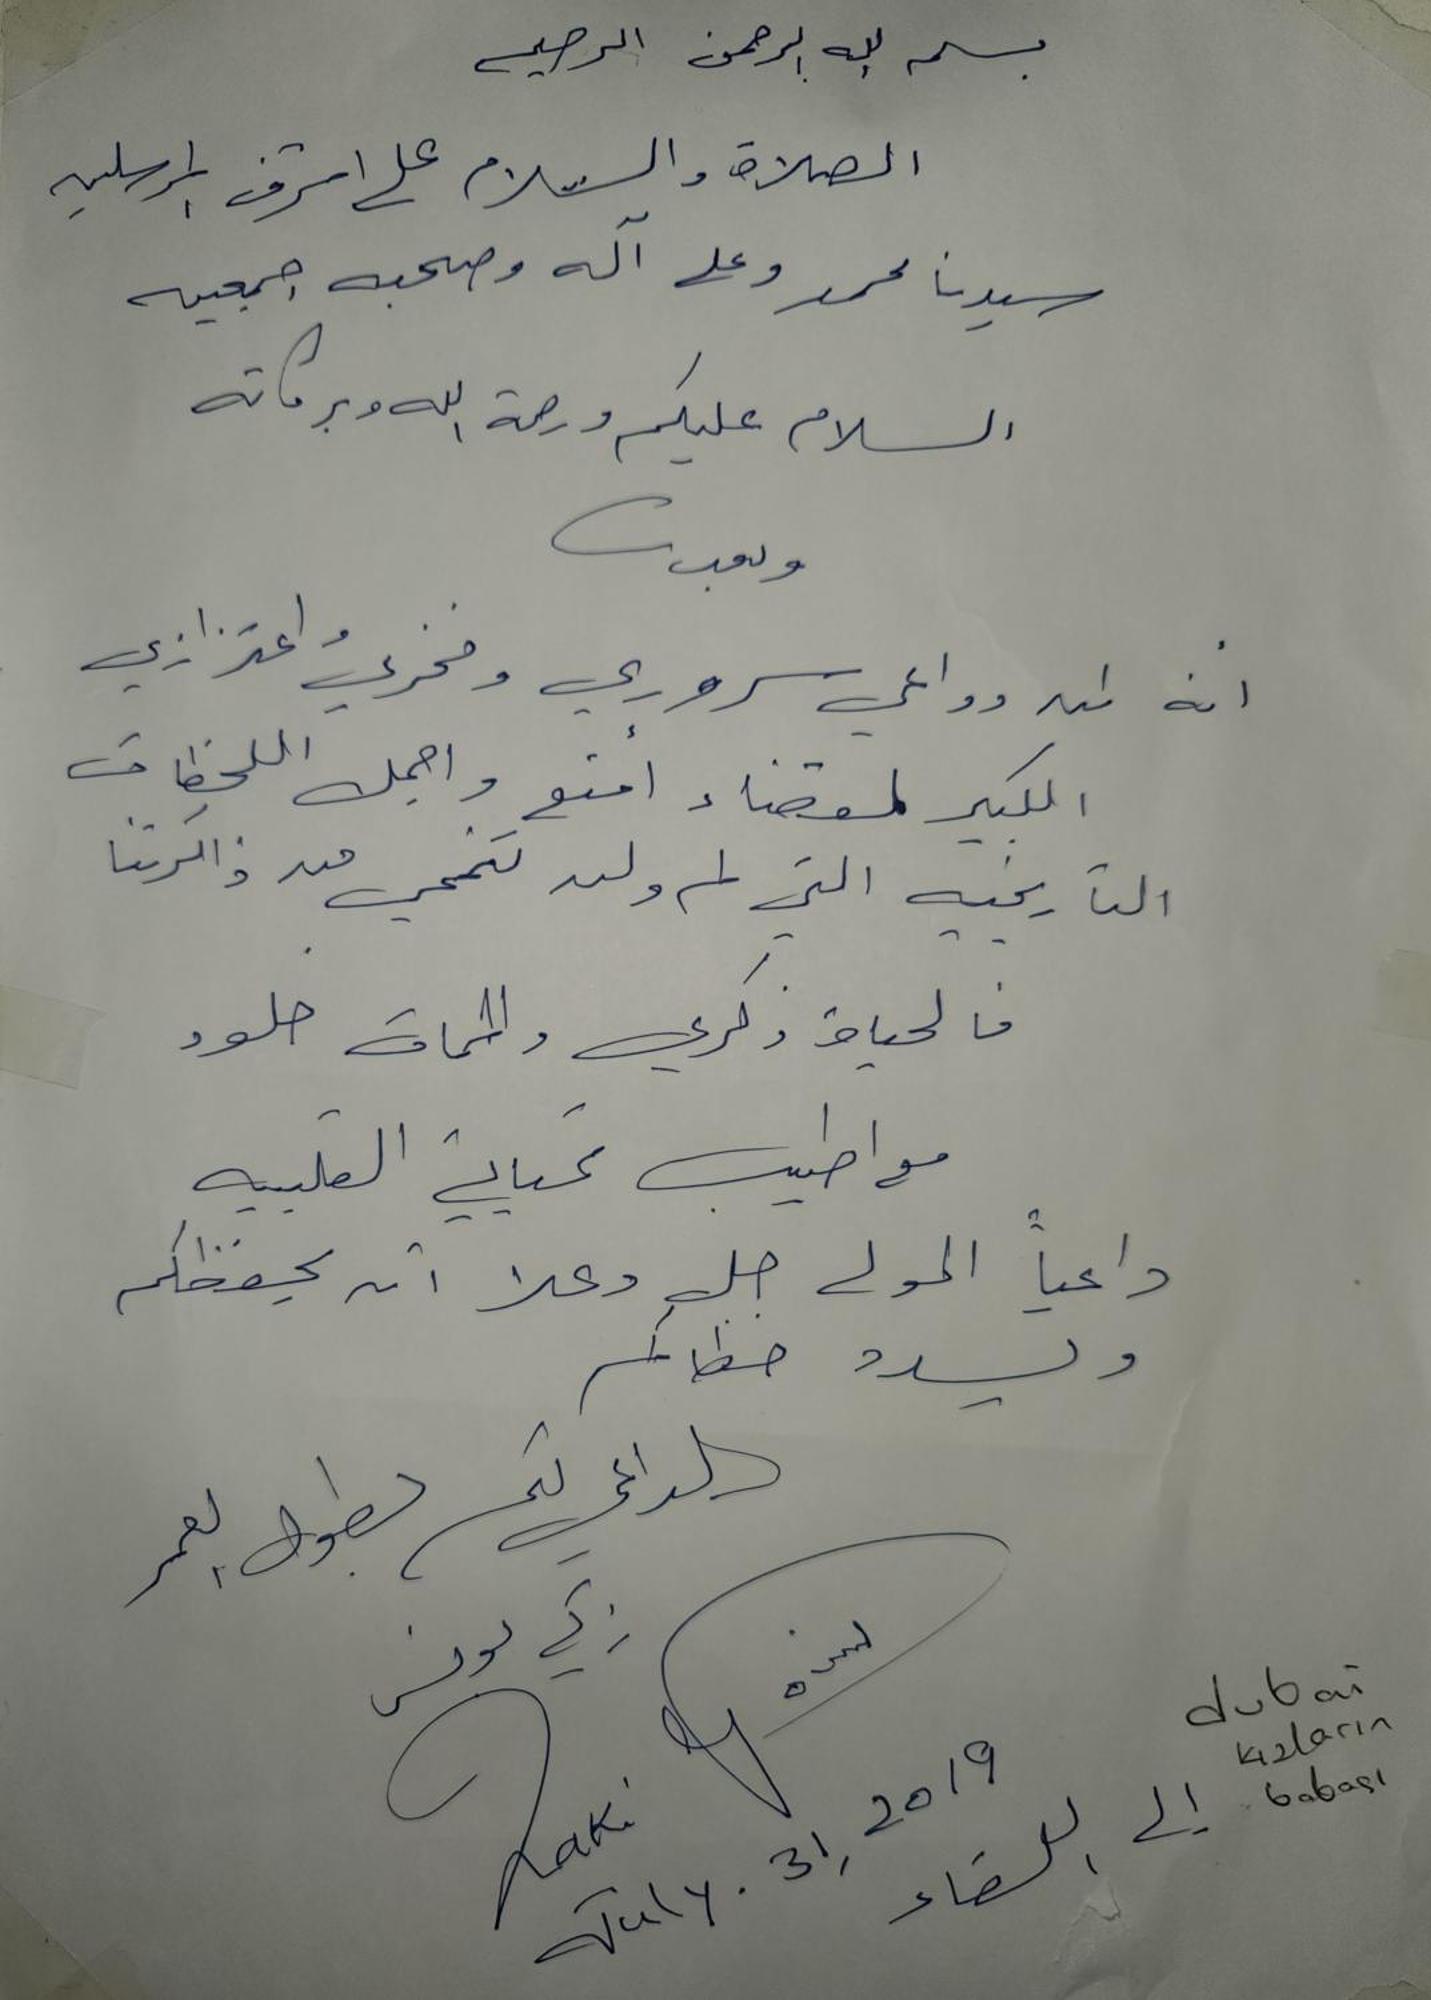 بسم الله الرحمن الرحيم
الصلاة والسلام على اشرف المرسلين
سيدنا محمد وعلى آله وصحبه اجمعين
السلام عليكم ورحمة الله وبركاته
وبعد
أنه لمن دواعي سروري وفخري واعتزازي
الكبير لقضاء أمتع واجمل اللحظات
التاريخيه التي لم ولن تنمحي من ذاكرتنا
فالحياة ذكرى والممات خلود
مع اطيب تحياتي القلبيه
داعياً المولى جل وعلا أن يحفظكم
ويسدد خطاكم
الداعي لكم بطول العمر
زكي يونس
Zaki
July. 31, 2019
الى اللقاء
dubai
kızların
babası